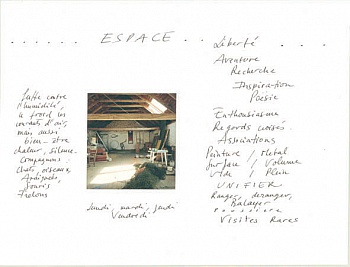 ESPACE
Lutte contre
l'humidité,
le froid les
courants d'air,
mais aussi
bien-être
chaleur, silence.
Compagnons:
Chats, oiseaux,
Araignées,
Souris
Frelons
Lundi, mardi, jeudi
Vendredi
Liberté
Aventure
Recherche
Inspiration
Poésie
Enthousiasme
Regards croisés.
Associations
Peinture / Métal
Surface / Volume
Vide / Plein
UNIFIER
Ranger, déranger,
Balayer
Poussière
Visites Rares